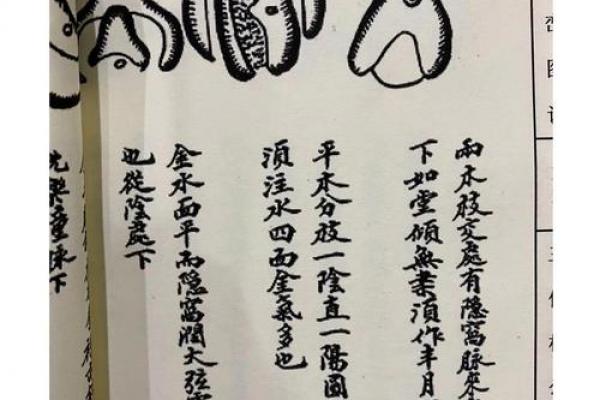 图
兩木枝交處有隱窩脉來
下如堂傾無案須作半月
平木分枝一陰直一陽圓
須注水四面金氣多也
金水面平而隱窩濶大弦
也從陰處下